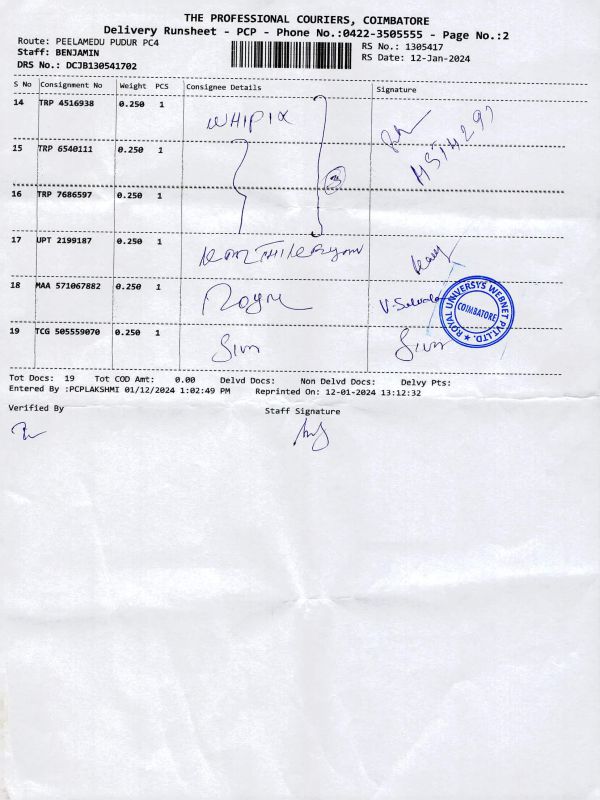 THE PROFESSIONAL COURIERS, COIMBATORE
Delivery Runsheet - PCP - Phone No.:0422-3505555 - Page No.:2
Route: PEELAMEDU PUDUR PC4
RS No.: 1305417
Staff: BENJAMIN
RS Date: 12-Jan-2024
DRS No.: DCJB130541702
S No Consignment No Weight PCS Consignee Details Signature
14 TRP 4516938 0.250 1 WHIPIX
15 TRP 6540111 0.250 1
16 TRP 7686597 0.250 1
17 UPT 2199187 0.250 1
18 MAA 571067882 0.250 1
ROYAL UNIVERSYS WEBNET PVT.LTD.
COIMBATORE
19 TCG 505559070 0.250 1
Tot Docs: 19 Tot COD Amt: 0.00 Delvd Docs: Non Delvd Docs: Delvy Pts:
Entered By :PCPLAKSHMI 01/12/2024 1:02:49 PM Reprinted On: 12-01-2024 13:12:32
Verified By Staff Signature